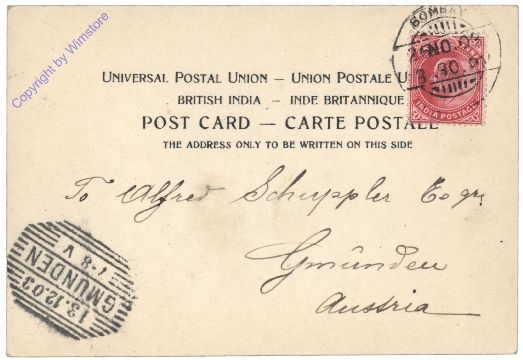 Copyright by Wimstore
BOMBAY
UNIVERSAL POSTAL UNION – UNION POSTALE U
BRITISH INDIA – INDE BRITANNIQUE
POST CARD – CARTE POSTALE
THE ADDRESS ONLY TO BE WRITTEN ON THIS SIDE
INDIA POSTAGE
To Alfred Schuppler Esqr
Gmünden
Austria
13.12.03
7-8 V
GMUNDEN